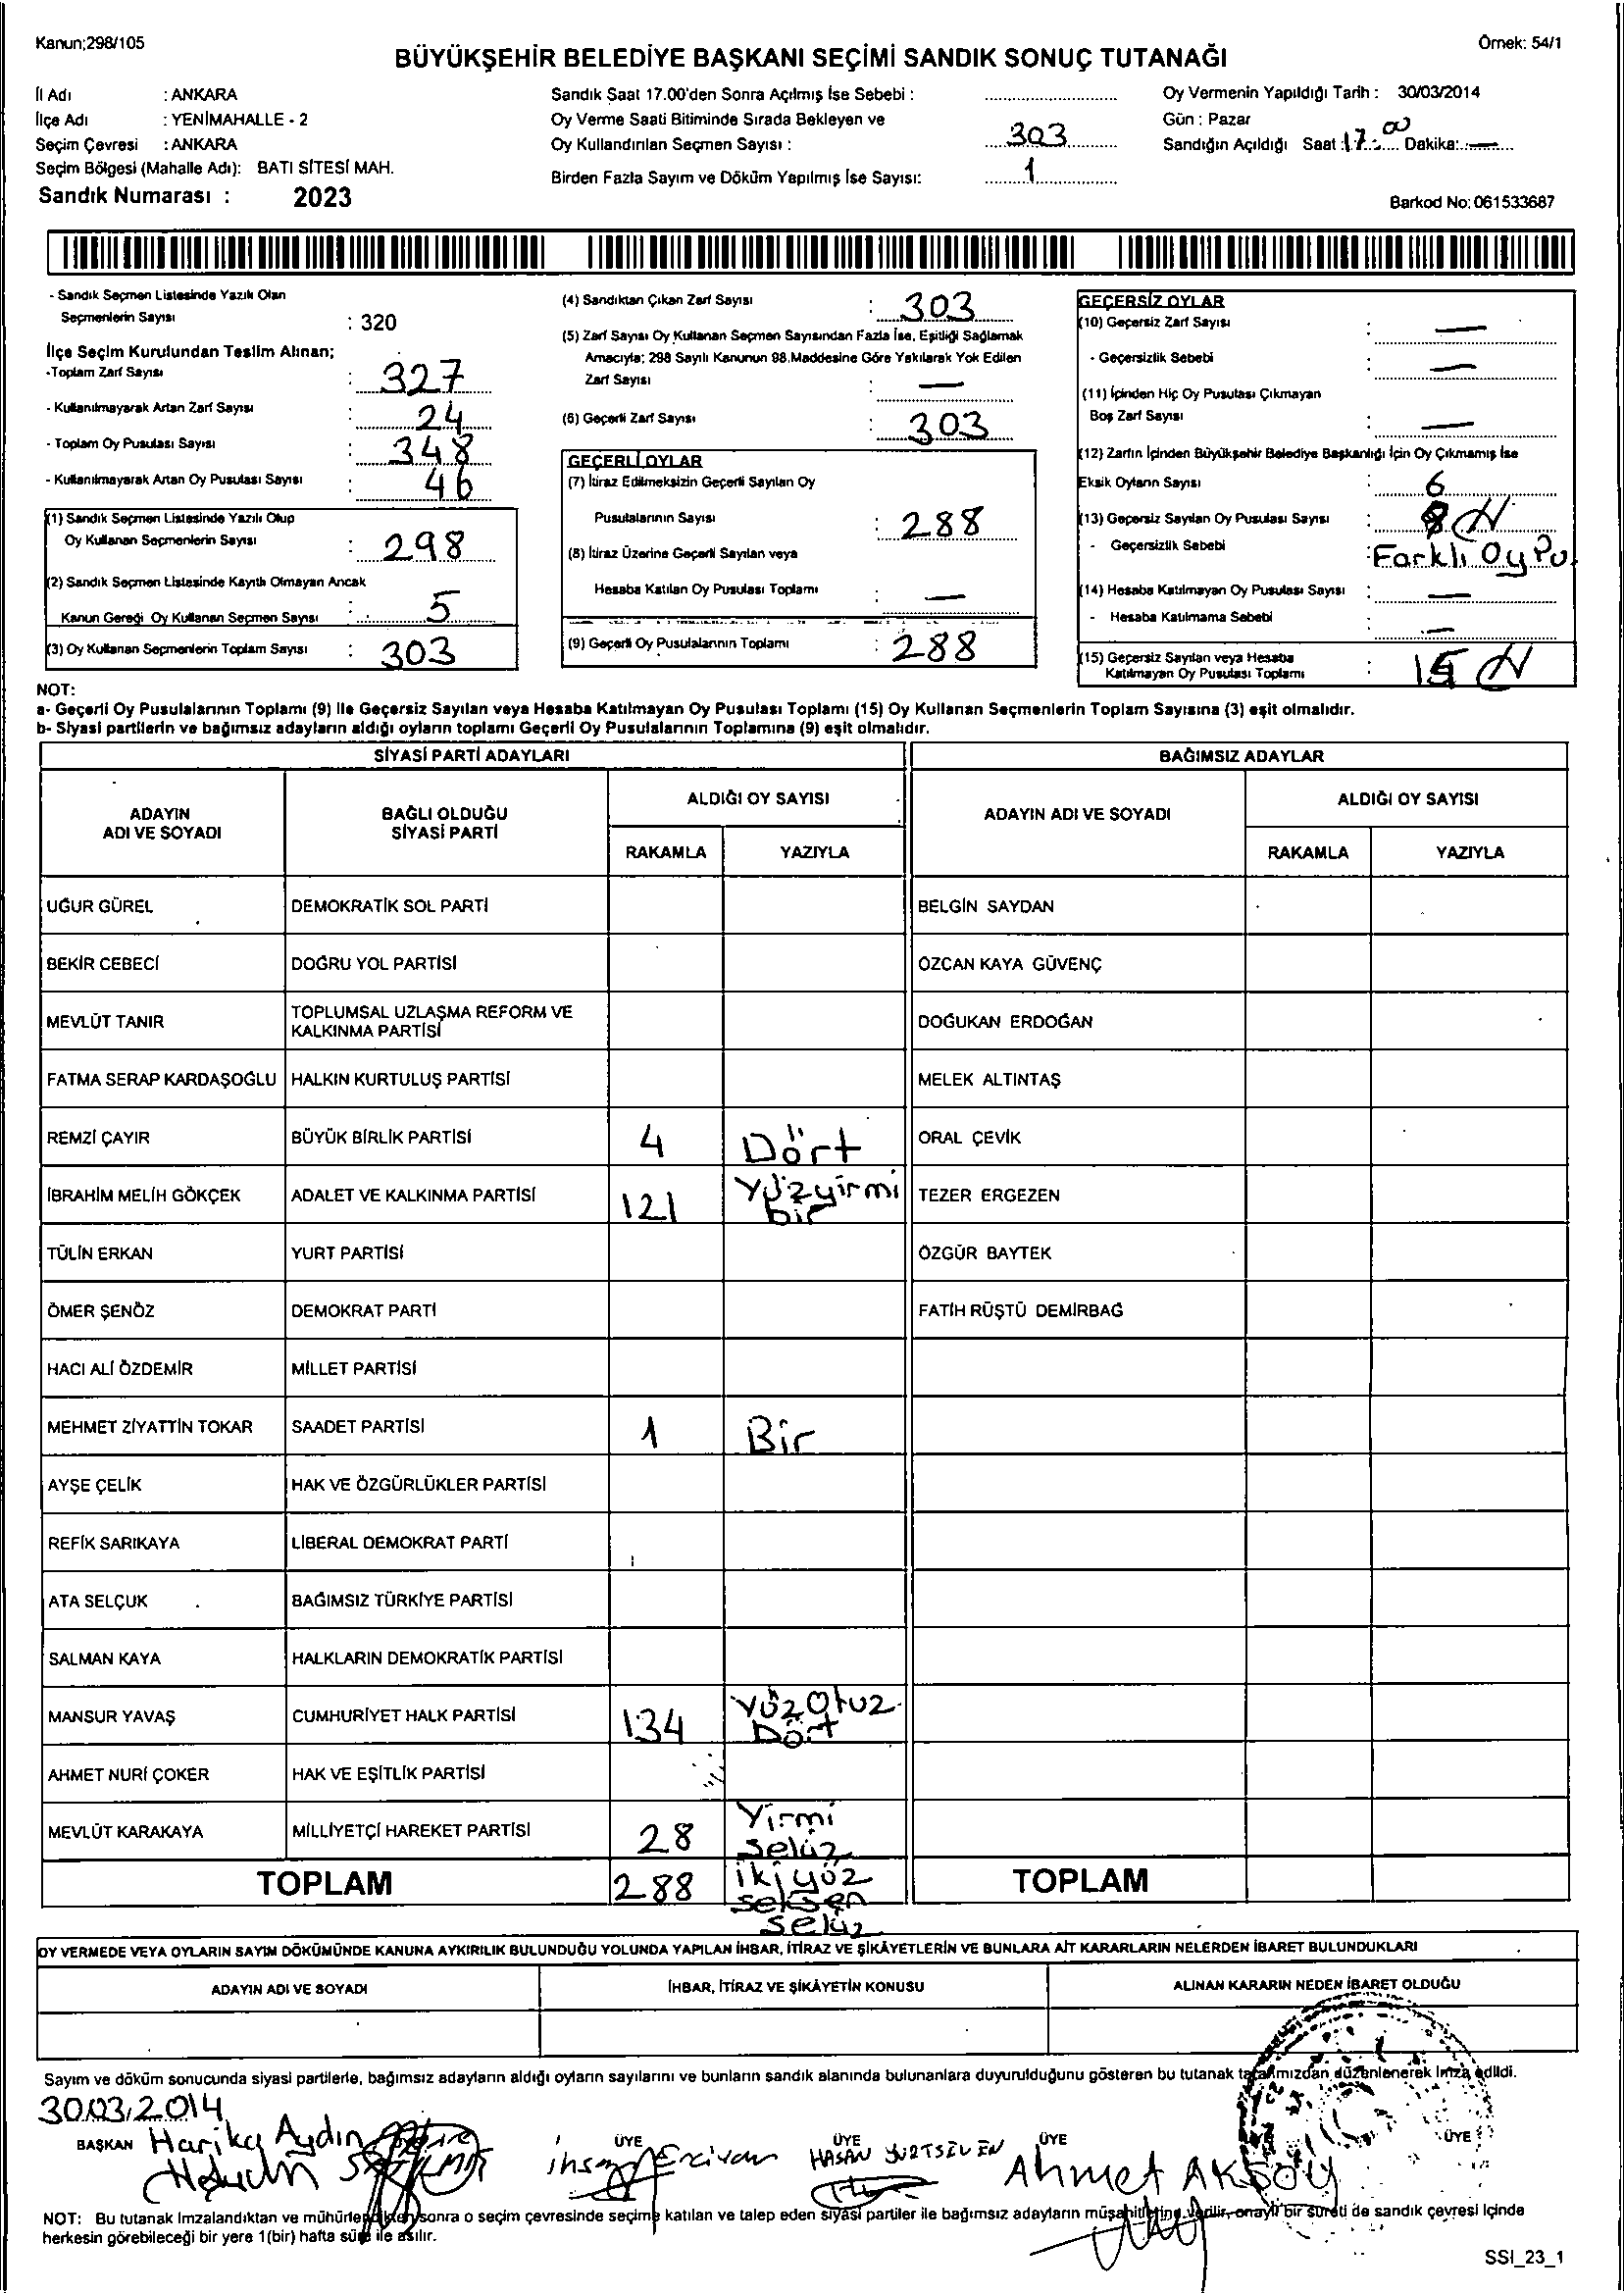 Kanun;298/105
Örnek: 54/1
BÜYÜKŞEHİR BELEDİYE BAŞKANI SEÇİMİ SANDIK SONUÇ TUTANAĞI
İl Adı : ANKARA
İlçe Adı : YENİMAHALLE - 2
Seçim Çevresi : ANKARA
Seçim Bölgesi (Mahalle Adı): BATI SİTESİ MAH.
Sandık Numarası : 2023
Sandık Saat 17.00'den Sonra Açılmış İse Sebebi :
Oy Verme Saati Bitiminde Sırada Bekleyen ve
Oy Kullandırılan Seçmen Sayısı : 303
Birden Fazla Sayım ve Döküm Yapılmış İse Sayısı: 1
Oy Vermenin Yapıldığı Tarih : 30/03/2014
Gün : Pazar
Sandığın Açıldığı Saat : 17.00 Dakika: —
Barkod No: 061533687
- Sandık Seçmen Listesinde Yazılı Olan
Seçmenlerin Sayısı : 320
İlçe Seçim Kurulundan Teslim Alınan;
-Toplam Zarf Sayısı : 327
- Kullanılmayarak Artan Zarf Sayısı : 24
- Toplam Oy Pusulası Sayısı : 348
- Kullanılmayarak Artan Oy Pusulası Sayısı : 46
(1) Sandık Seçmen Listesinde Yazılı Olup
Oy Kullanan Seçmenlerin Sayısı : 298
(2) Sandık Seçmen Listesinde Kayıtlı Olmayan Ancak
Kanun Gereği Oy Kullanan Seçmen Sayısı : 5
(3) Oy Kullanan Seçmenlerin Toplam Sayısı : 303
(4) Sandıktan Çıkan Zarf Sayısı : 303
(5) Zarf Sayısı Oy Kullanan Seçmen Sayısından Fazla İse, Eşitliği Sağlamak
Amacıyla; 298 Sayılı Kanunun 98.Maddesine Göre Yakılarak Yok Edilen
Zarf Sayısı : —
(6) Geçerli Zarf Sayısı : 303
GEÇERLİ OYLAR
(7) İtiraz Edilmeksizin Geçerli Sayılan Oy
Pusulalarının Sayısı : 288
(8) İtiraz Üzerine Geçerli Sayılan veya
Hesaba Katılan Oy Pusulası Toplamı : —
(9) Geçerli Oy Pusulalarının Toplamı : 288
GEÇERSİZ OYLAR
(10) Geçersiz Zarf Sayısı : —
- Geçersizlik Sebebi : —
(11) İçinden Hiç Oy Pusulası Çıkmayan
Boş Zarf Sayısı : —
(12) Zarfın İçinden Büyükşehir Belediye Başkanlığı İçin Oy Çıkmamış İse
Eksik Oyların Sayısı : 6
(13) Geçersiz Sayılan Oy Pusulası Sayısı :
- Geçersizlik Sebebi : Farklı Oy Pu.
(14) Hesaba Katılmayan Oy Pusulası Sayısı : —
- Hesaba Katılmama Sebebi : —
(15) Geçersiz Sayılan veya Hesaba
Katılmayan Oy Pusulası Toplamı : 15
NOT:
a- Geçerli Oy Pusulalarının Toplamı (9) ile Geçersiz Sayılan veya Hesaba Katılmayan Oy Pusulası Toplamı (15) Oy Kullanan Seçmenlerin Toplam Sayısına (3) eşit olmalıdır.
b- Siyasi partilerin ve bağımsız adayların aldığı oyların toplamı Geçerli Oy Pusulalarının Toplamına (9) eşit olmalıdır.
SİYASİ PARTİ ADAYLARI BAĞIMSIZ ADAYLAR
ADAYIN ADI VE SOYADI BAĞLI OLDUĞU SİYASİ PARTİ ALDIĞI OY SAYISI ADAYIN ADI VE SOYADI ALDIĞI OY SAYISI
RAKAMLA YAZIYLA RAKAMLA YAZIYLA
UĞUR GÜREL DEMOKRATİK SOL PARTİ BELGİN SAYDAN
BEKİR CEBECİ DOĞRU YOL PARTİSİ ÖZCAN KAYA GÜVENÇ
MEVLÜT TANIR TOPLUMSAL UZLAŞMA REFORM VE KALKINMA PARTİSİ DOĞUKAN ERDOĞAN
FATMA SERAP KARDAŞOĞLU HALKIN KURTULUŞ PARTİSİ MELEK ALTINTAŞ
REMZİ ÇAYIR BÜYÜK BİRLİK PARTİSİ 4 Dört ORAL ÇEVİK
İBRAHİM MELİH GÖKÇEK ADALET VE KALKINMA PARTİSİ 121 Yüzyirmi bir TEZER ERGEZEN
TÜLİN ERKAN YURT PARTİSİ ÖZGÜR BAYTEK
ÖMER ŞENÖZ DEMOKRAT PARTİ FATİH RÜŞTÜ DEMİRBAĞ
HACI ALİ ÖZDEMİR MİLLET PARTİSİ
MEHMET ZİYATTİN TOKAR SAADET PARTİSİ 1 Bir
AYŞE ÇELİK HAK VE ÖZGÜRLÜKLER PARTİSİ
REFİK SARIKAYA LİBERAL DEMOKRAT PARTİ
ATA SELÇUK BAĞIMSIZ TÜRKİYE PARTİSİ
SALMAN KAYA HALKLARIN DEMOKRATİK PARTİSİ
MANSUR YAVAŞ CUMHURİYET HALK PARTİSİ 134 YüzOtuz Dört
AHMET NURİ ÇOKER HAK VE EŞİTLİK PARTİSİ
MEVLÜT KARAKAYA MİLLİYETÇİ HAREKET PARTİSİ 28 Yirmi Selüz
TOPLAM 288 iki yüz seksen selüz TOPLAM
OY VERMEDE VEYA OYLARIN SAYIM DÖKÜMÜNDE KANUNA AYKIRILIK BULUNDUĞU YOLUNDA YAPILAN İHBAR, İTİRAZ VE ŞİKÂYETLERİN VE BUNLARA AİT KARARLARIN NELERDEN İBARET BULUNDUKLARI
ADAYIN ADI VE SOYADI İHBAR, İTİRAZ VE ŞİKÂYETİN KONUSU ALINAN KARARIN NEDEN İBARET OLDUĞU
Sayım ve döküm sonucunda siyasi partilerle, bağımsız adayların aldığı oyların sayılarını ve bunların sandık alanında bulunanlara duyurulduğunu gösteren bu tutanak tarafımızdan düzenlenerek imza edildi.
30.03.2014
BAŞKAN Harika Aydın ÜYE ÜYE HASAN YURTSEVEN ÜYE Ahmet AKSOY ÜYE
NOT: Bu tutanak imzalandıktan ve mühürlendikten sonra o seçim çevresinde seçime katılan ve talep eden siyasi partiler ile bağımsız adayların müşahitlerine verilir, onaylı bir sureti de sandık çevresi içinde
herkesin görebileceği bir yere 1(bir) hafta süre ile asılır.
SSI_23_1